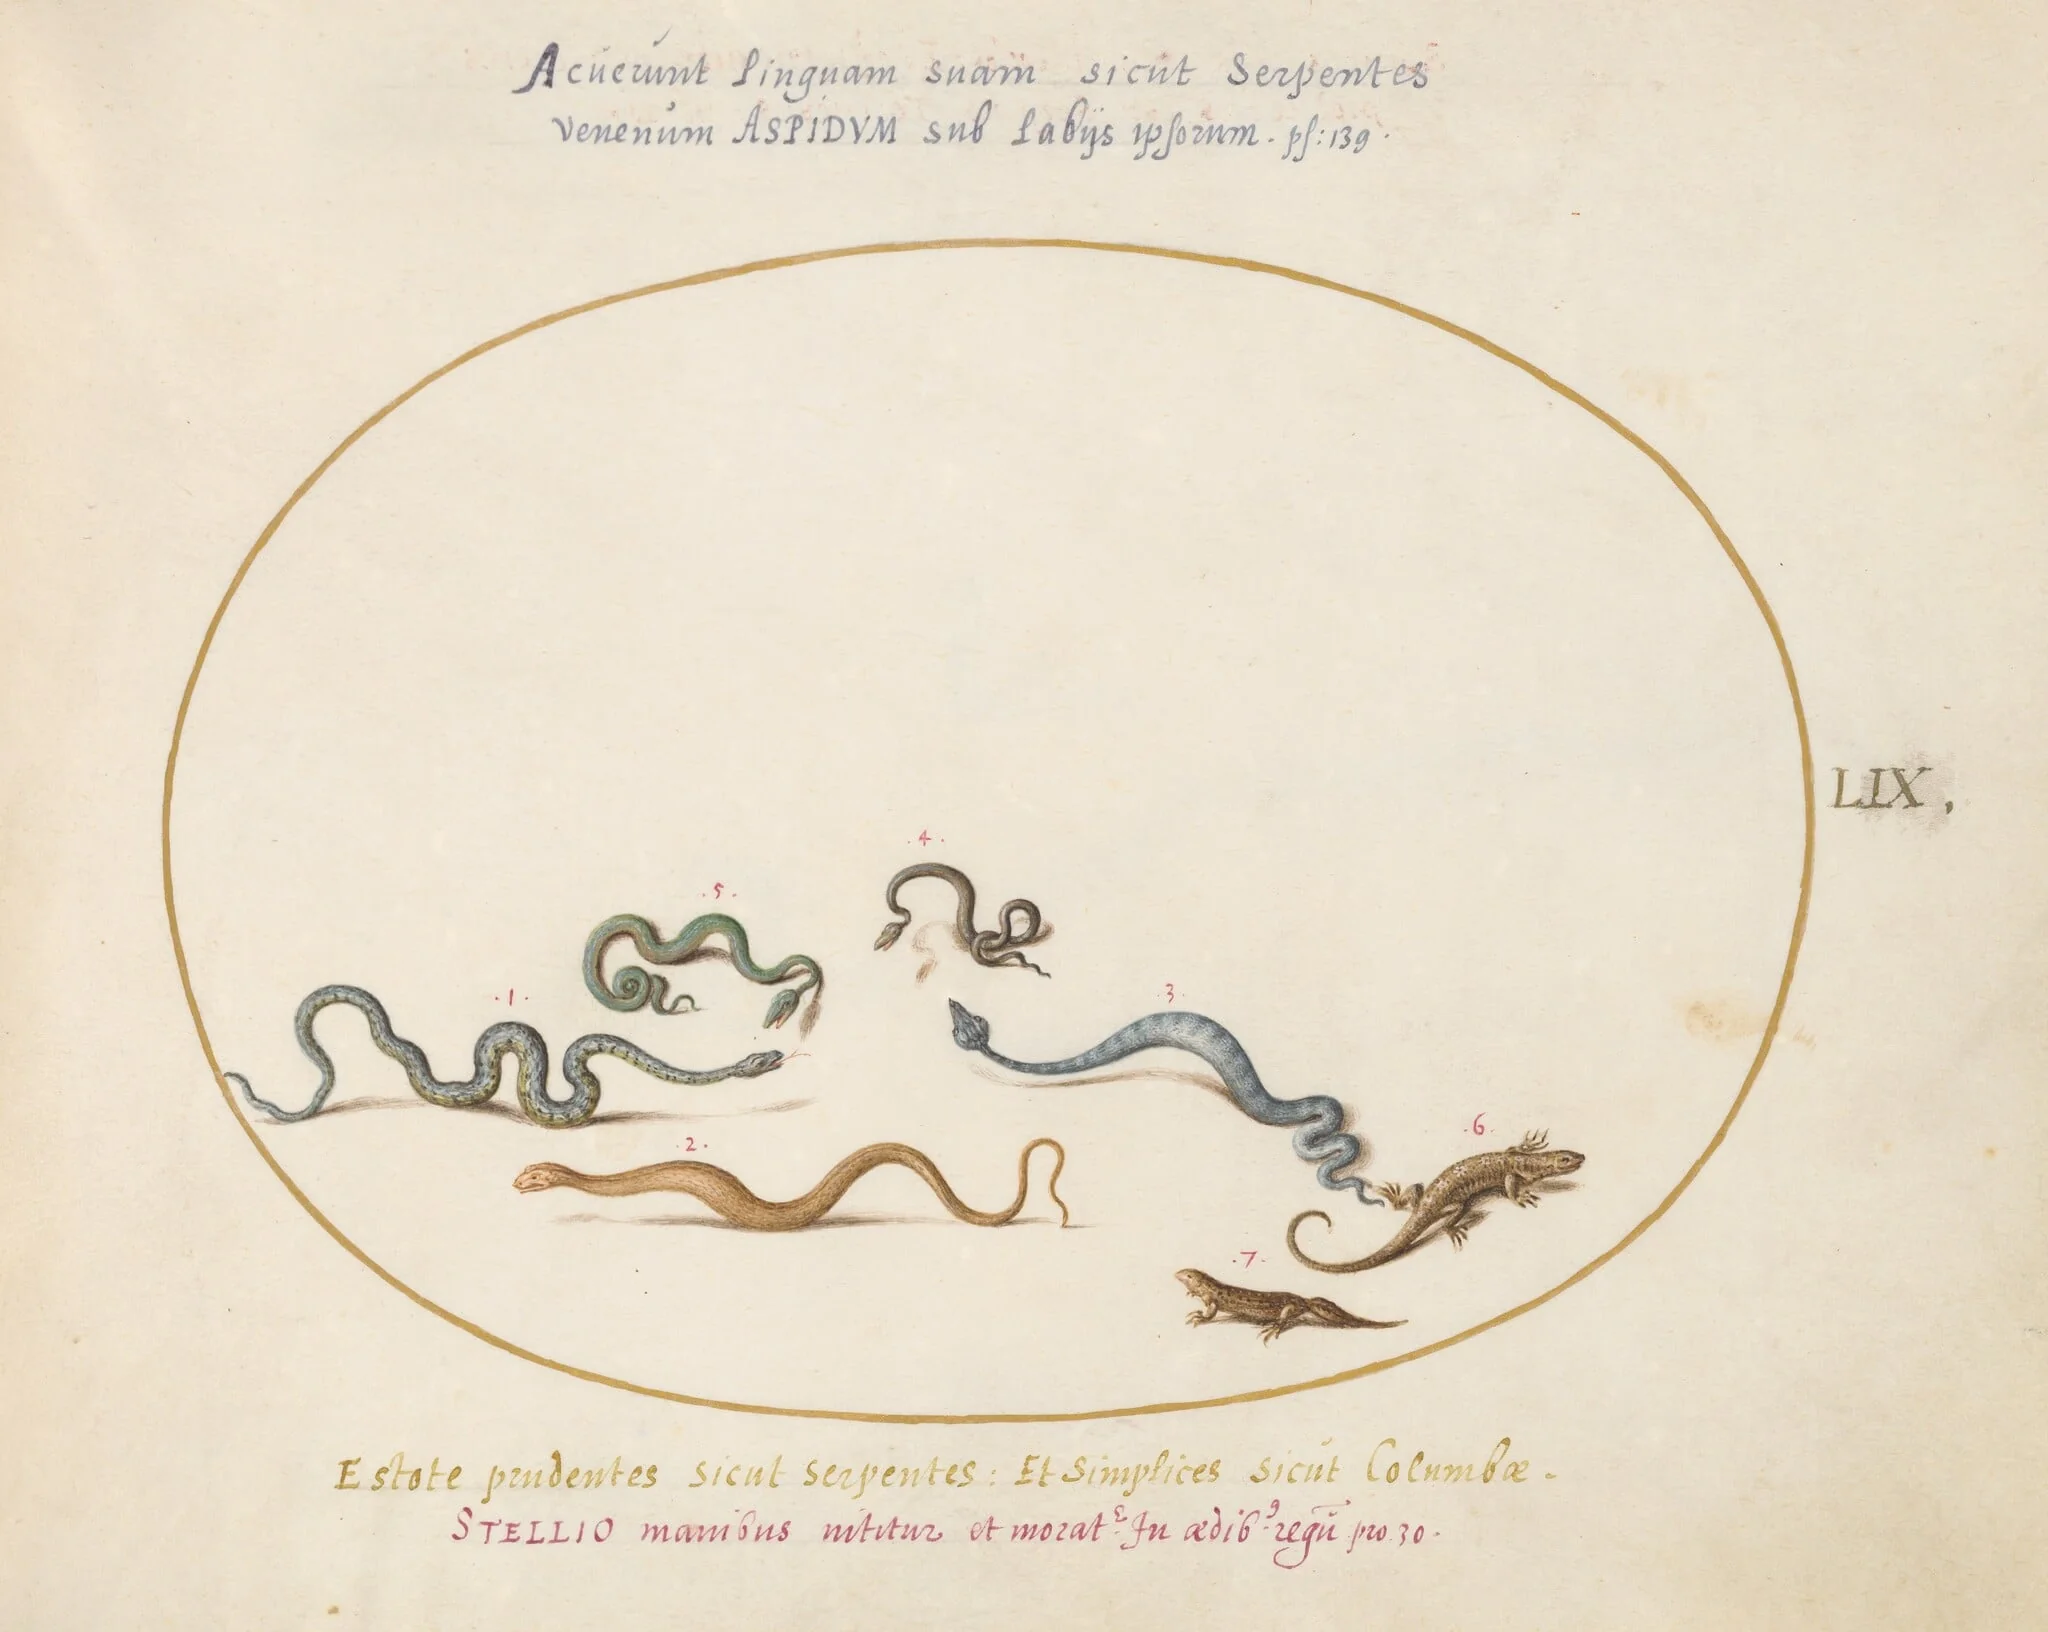 Acuerunt linguam suam sicut Serpentes
venenum ASPIDVM sub labijs ipsorum. ps: 139.
LIX,
.4.
.5.
.1.
.3.
.2.
.6.
.7.
Estote prudentes sicut serpentes: Et Simplices sicut Columbæ.
STELLIO manibus nititur et morat.ͬ In ædib.⁹ regū pro. 30.